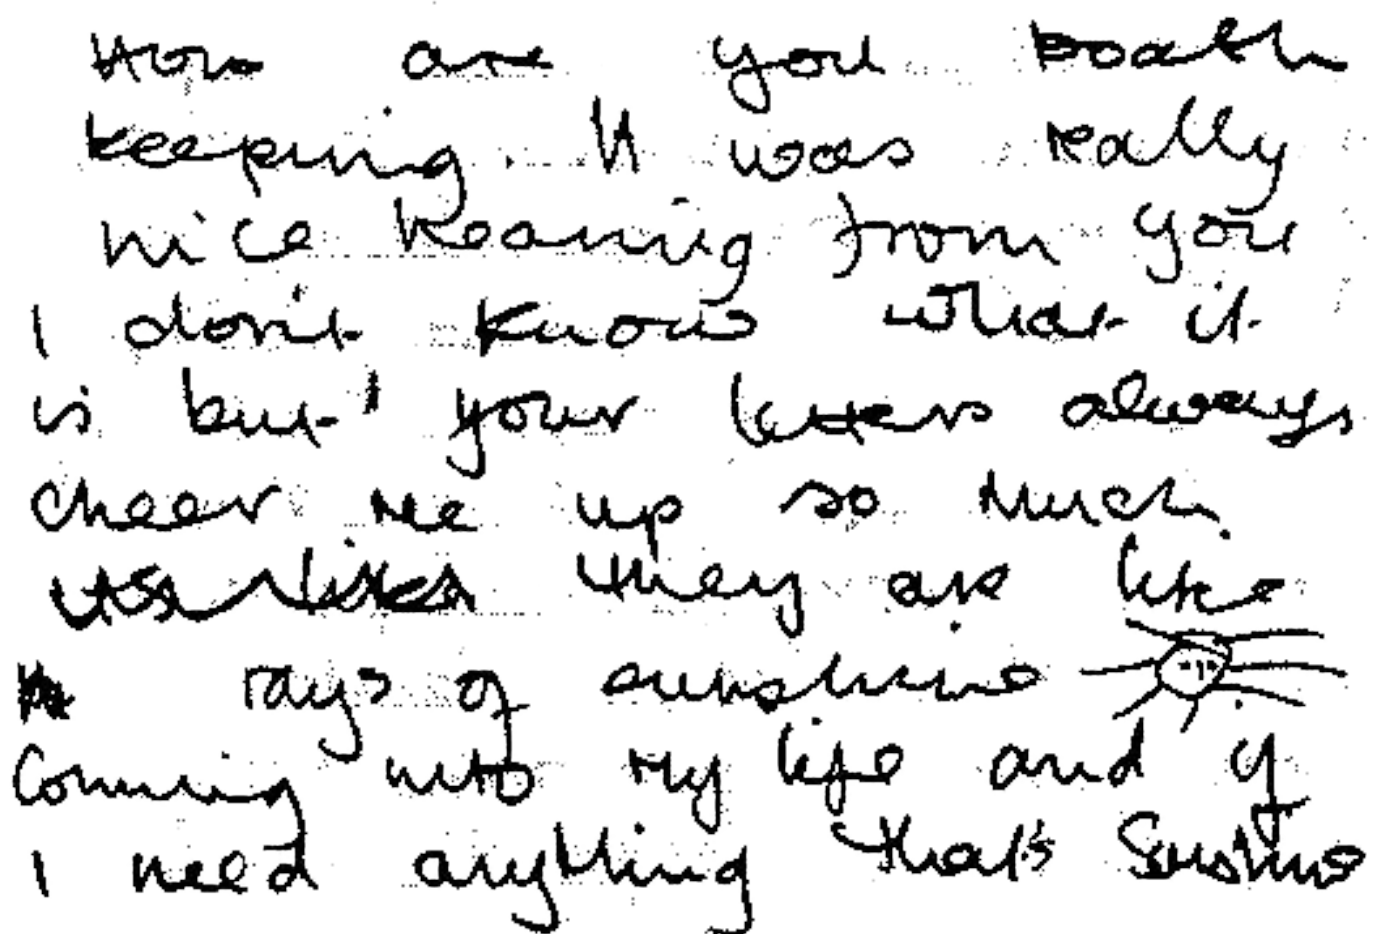 How are you boath
keeping. It was really
nice hearing from you
I don't know what it
is but your letters always
cheer me up so much
they are like
rays of sunshine
Coming into my life and if
I need anything that's Sunshine